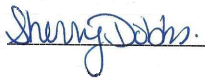 Sherry Dobbs.